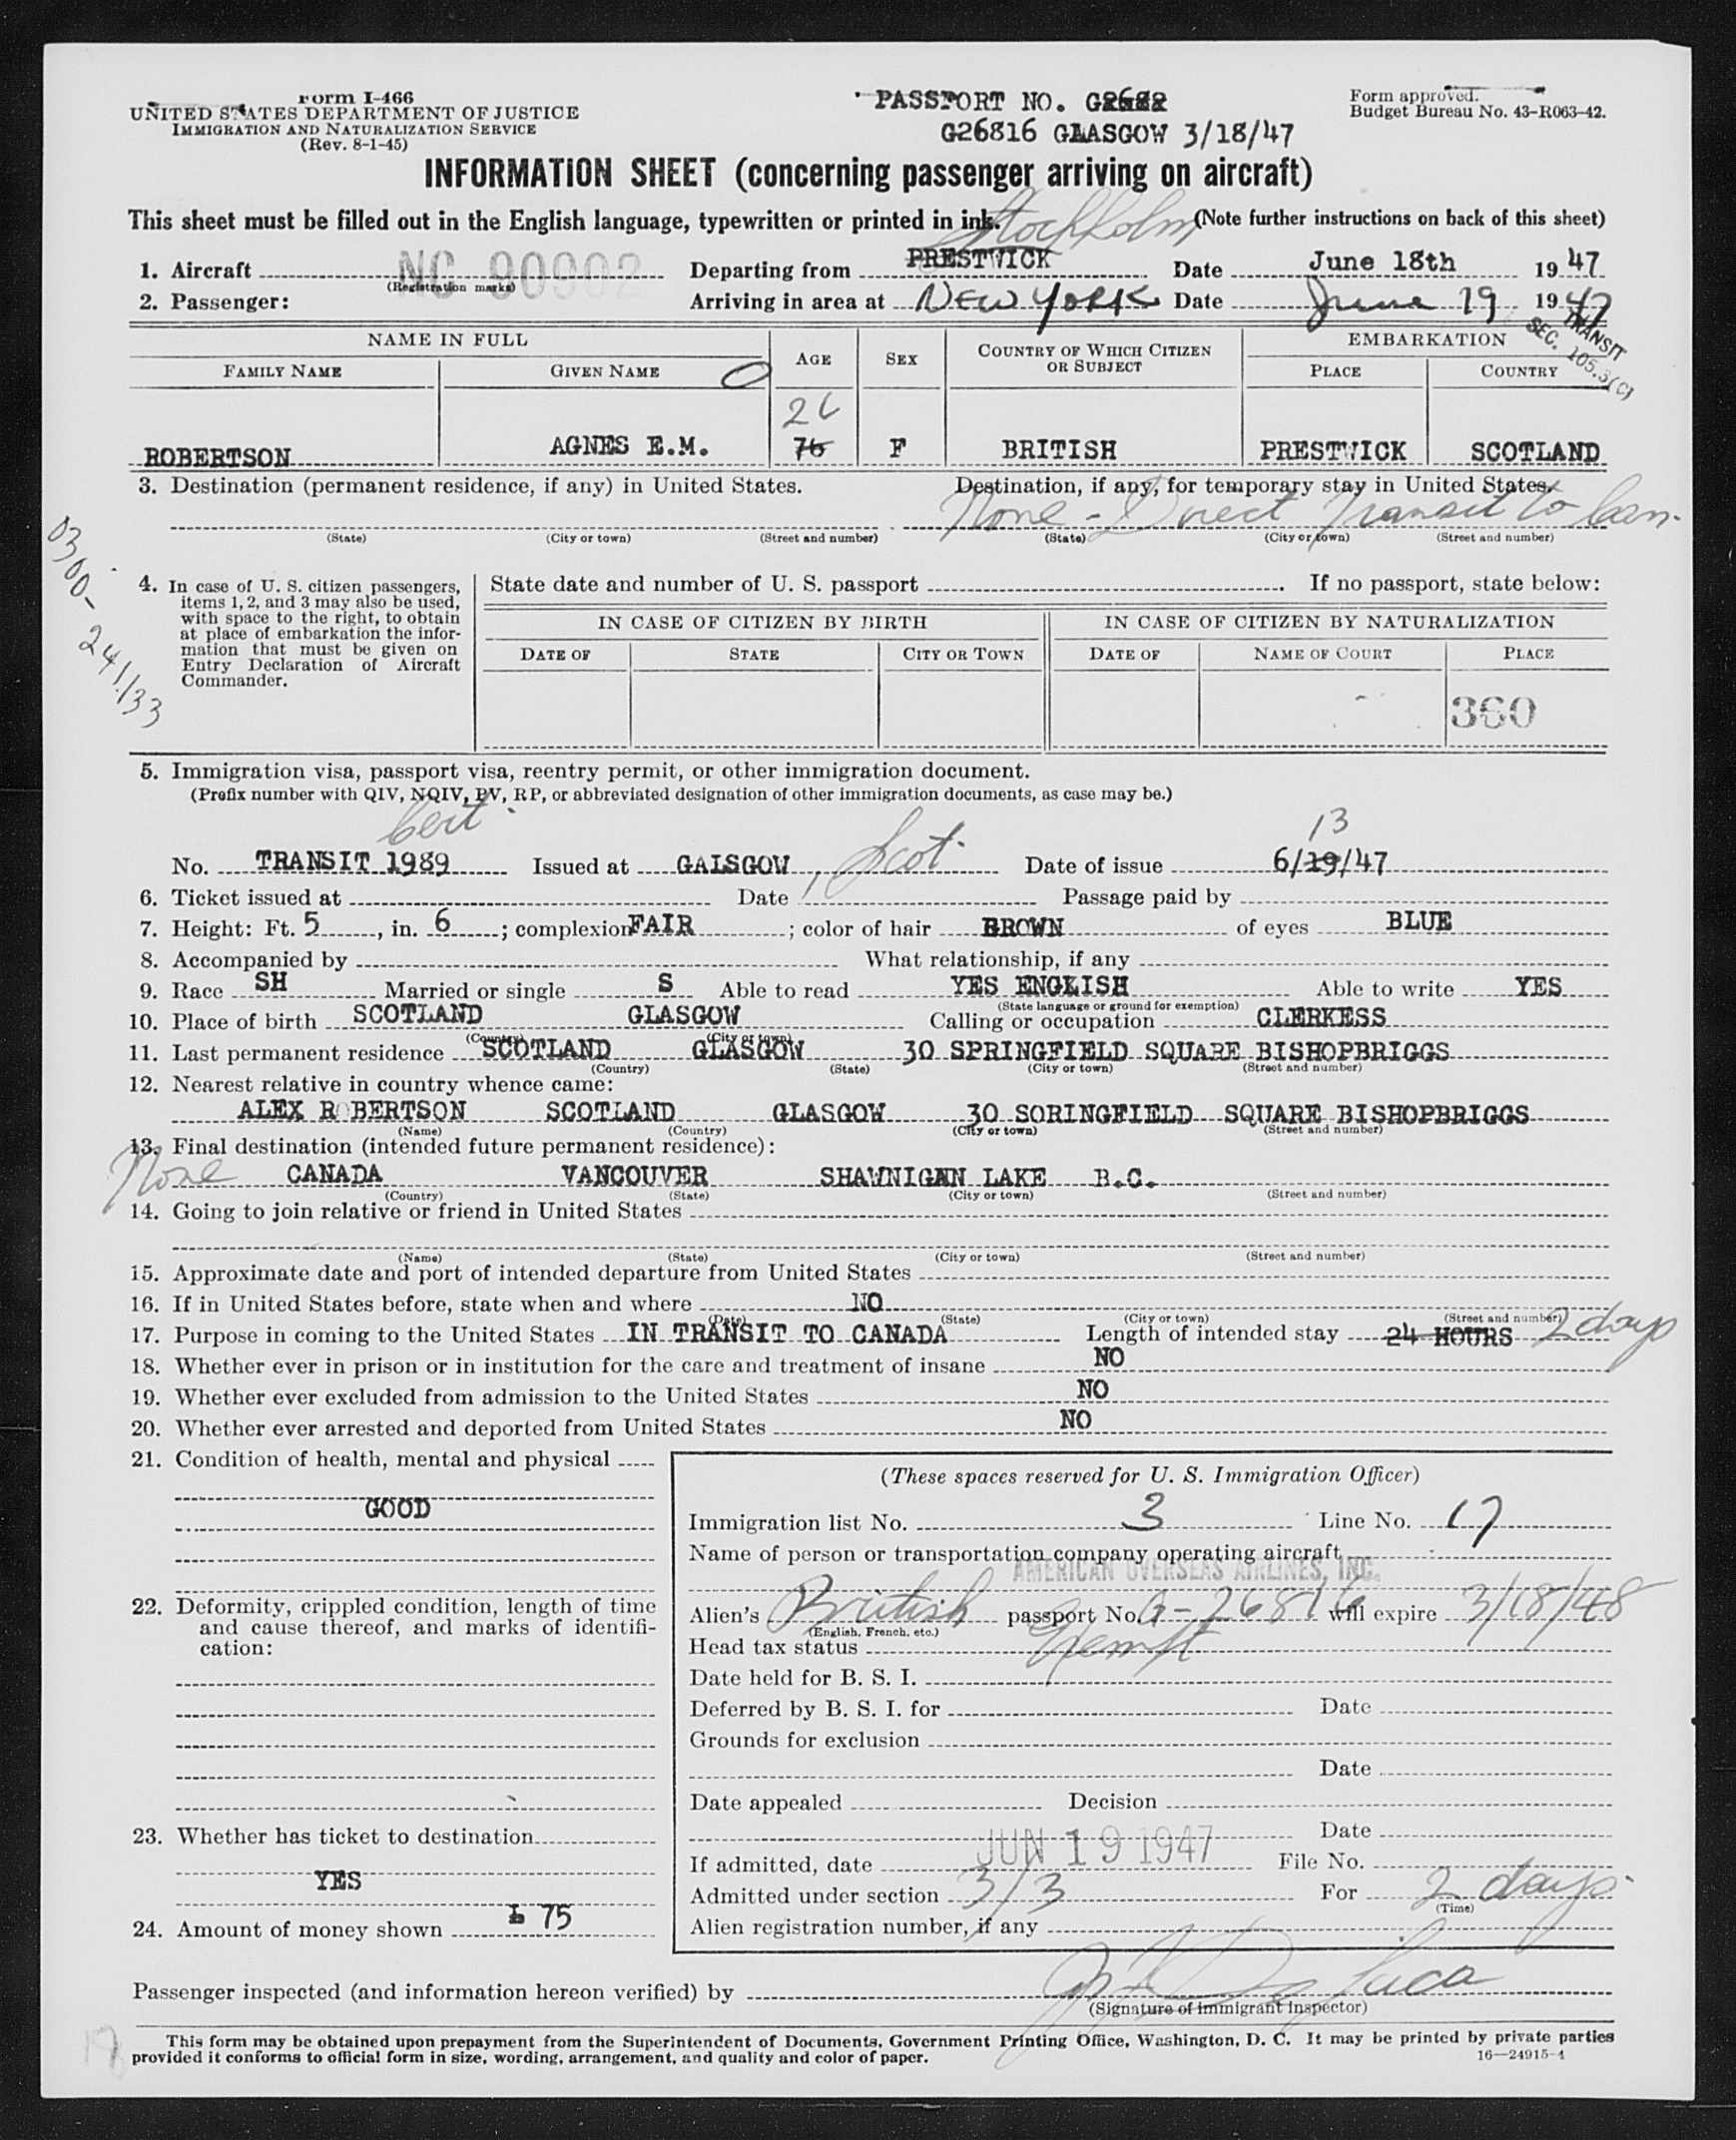 Form I-466
UNITED STATES DEPARTMENT OF JUSTICE
IMMIGRATION AND NATURALIZATION SERVICE
(Rev. 8-1-45)
PASSPORT NO.
G26816 GLASGOW 3/18/47
Form approved.
Budget Bureau No. 43-R063-42.
INFORMATION SHEET (concerning passenger arriving on aircraft)
This sheet must be filled out in the English language, typewritten or printed in ink. (Note further instructions on back of this sheet)
Stockholm
1. Aircraft NC 90902 Departing from PRESTWICK Date June 18th 19 47
(Registration marks)
2. Passenger: Arriving in area at NEW YORK Date June 19 19 47
TRANSIT
SEC. 105.3(C)
NAME IN FULL AGE SEX COUNTRY OF WHICH CITIZEN OR SUBJECT EMBARKATION
FAMILY NAME GIVEN NAME PLACE COUNTRY
26
ROBERTSON AGNES E.M. 76 F BRITISH PRESTWICK SCOTLAND
3. Destination (permanent residence, if any) in United States. Destination, if any, for temporary stay in United States.
None - Direct Transit to Can.
(State) (City or town) (Street and number) (State) (City or town) (Street and number)
0300-241133
4. In case of U. S. citizen passengers, items 1, 2, and 3 may also be used, with space to the right, to obtain at place of embarkation the information that must be given on Entry Declaration of Aircraft Commander.
State date and number of U. S. passport If no passport, state below:
IN CASE OF CITIZEN BY BIRTH IN CASE OF CITIZEN BY NATURALIZATION
DATE OF STATE CITY OR TOWN DATE OF NAME OF COURT PLACE
360
5. Immigration visa, passport visa, reentry permit, or other immigration document.
(Prefix number with QIV, NQIV, PV, RP, or abbreviated designation of other immigration documents, as case may be.)
Cert. 13
No. TRANSIT 1989 Issued at GALSGOW, Scot. Date of issue 6/19/47
6. Ticket issued at Date Passage paid by
7. Height: Ft. 5, in. 6; complexion FAIR; color of hair BROWN of eyes BLUE
8. Accompanied by What relationship, if any
9. Race SH Married or single S Able to read YES ENGLISH Able to write YES
(State language or ground for exemption)
10. Place of birth SCOTLAND GLASGOW Calling or occupation CLERKESS
(Country) (City or town)
11. Last permanent residence SCOTLAND GLASGOW 30 SPRINGFIELD SQUARE BISHOPBRIGGS
(Country) (State) (City or town) (Street and number)
12. Nearest relative in country whence came:
ALEX ROBERTSON SCOTLAND GLASGOW 30 SORINGFIELD SQUARE BISHOPBRIGGS
(Name) (Country) (City or town) (Street and number)
13. Final destination (intended future permanent residence):
None CANADA VANCOUVER SHAWNIGAN LAKE B.C.
(Country) (State) (City or town) (Street and number)
14. Going to join relative or friend in United States
(Name) (State) (City or town) (Street and number)
15. Approximate date and port of intended departure from United States
16. If in United States before, state when and where NO
(Date) (State) (City or town) (Street and number)
17. Purpose in coming to the United States IN TRANSIT TO CANADA Length of intended stay 24 HOURS 2 days
18. Whether ever in prison or in institution for the care and treatment of insane NO
19. Whether ever excluded from admission to the United States NO
20. Whether ever arrested and deported from United States NO
21. Condition of health, mental and physical
GOOD
22. Deformity, crippled condition, length of time and cause thereof, and marks of identification:
23. Whether has ticket to destination
YES
24. Amount of money shown £ 75
(These spaces reserved for U. S. Immigration Officer)
Immigration list No. 3 Line No. 17
Name of person or transportation company operating aircraft
AMERICAN OVERSEAS AIRLINES, INC.
Alien's British passport No. G-26816 will expire 3/18/48
(English, French, etc.)
Head tax status Exempt
Date held for B. S. I.
Deferred by B. S. I. for Date
Grounds for exclusion
Date
Date appealed Decision
Date
If admitted, date JUN 19 1947 File No.
Admitted under section 3/3 For 2 days
(Time)
Alien registration number, if any
Passenger inspected (and information hereon verified) by
(Signature of immigrant inspector)
This form may be obtained upon prepayment from the Superintendent of Documents, Government Printing Office, Washington, D. C. It may be printed by private parties
provided it conforms to official form in size, wording, arrangement, and quality and color of paper.
16—24915-4